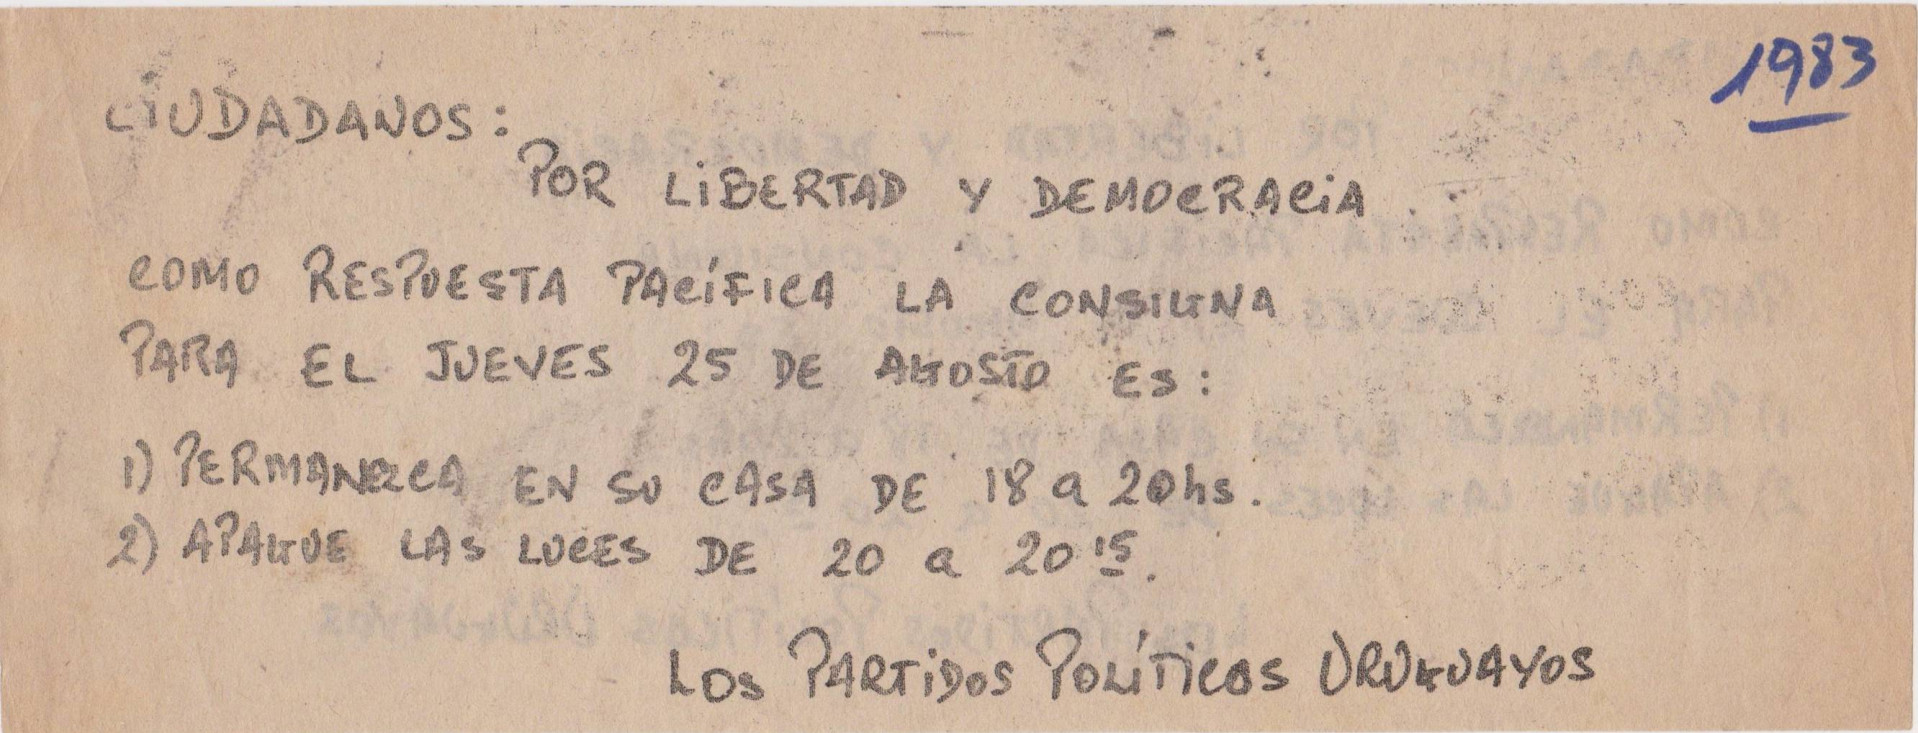 1983
CIUDADANOS:
POR LIBERTAD Y DEMOCRACIA
COMO RESPUESTA PACÍFICA LA CONSIGNA
PARA EL JUEVES 25 DE AGOSTO ES:
1) PERMANEZCA EN SU CASA DE 18 a 20hs.
2) APAGUE LAS LUCES DE 20 a 20 15.
LOS PARTIDOS POLÍTICOS URUGUAYOS